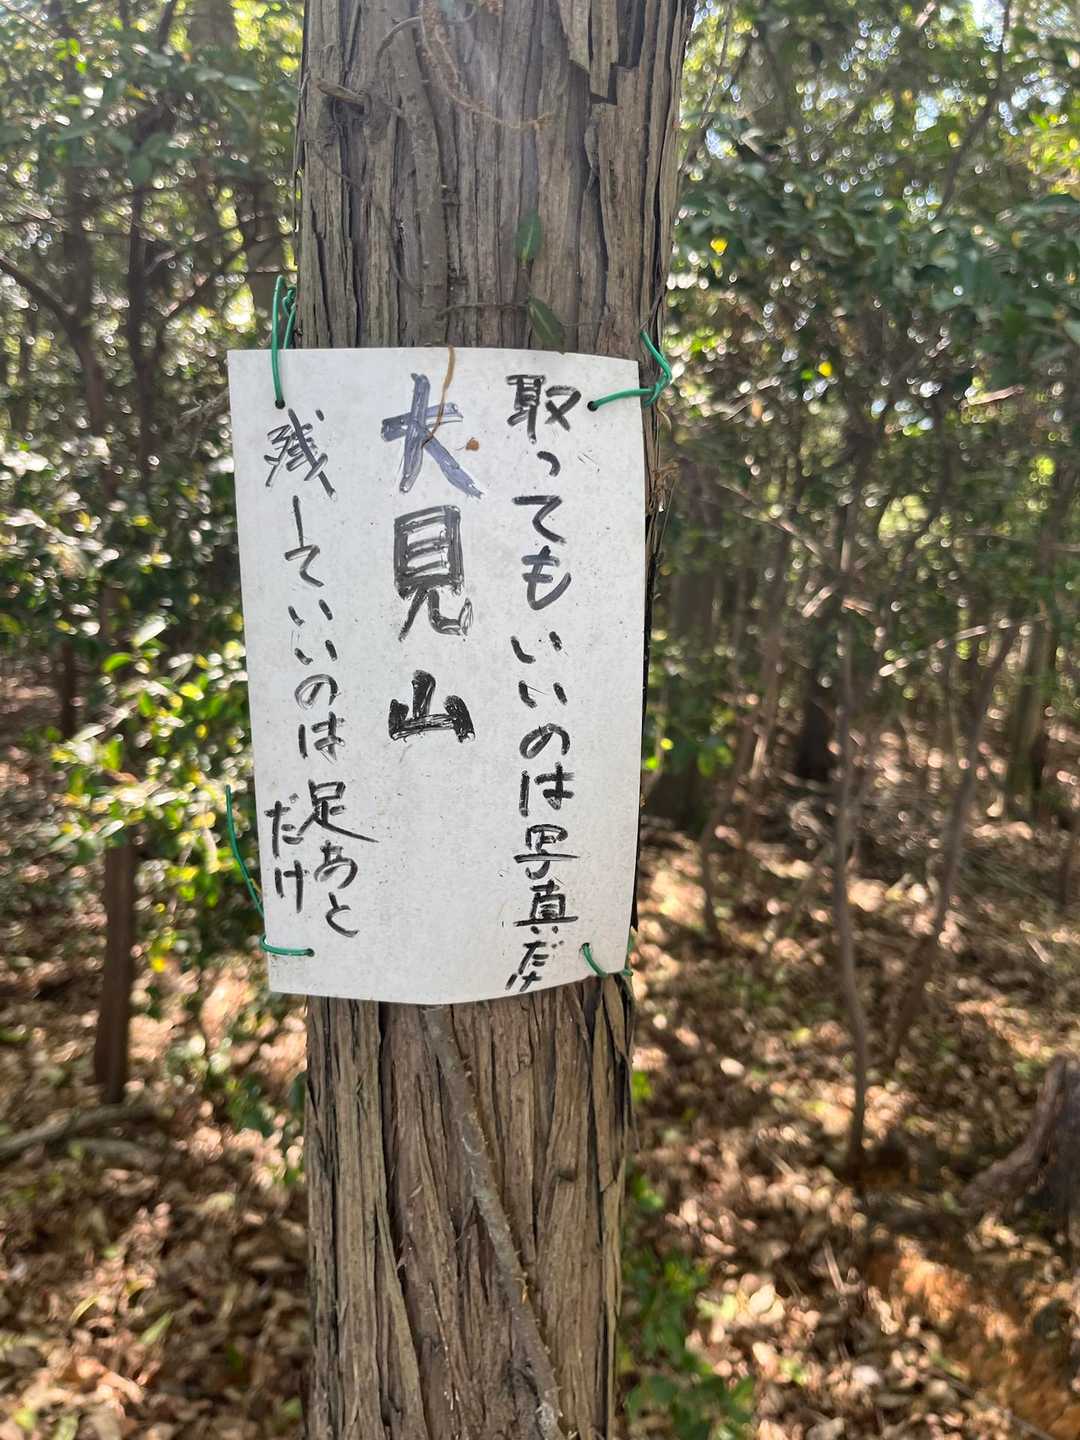 取ってもいいのは写真だけ
大見山
残していいのは足あと
だけ